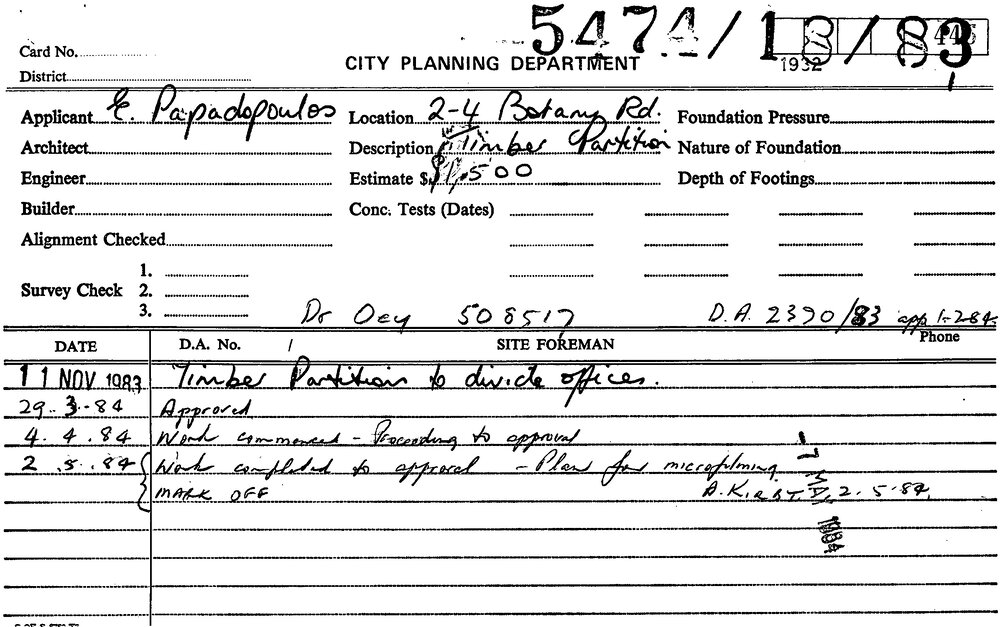 5474/13/83
Card No.
CITY PLANNING DEPARTMENT
1932
District
Applicant E. Papadopoulos Location 2-4 Botany Rd. Foundation Pressure
Architect Description Timber Partition Nature of Foundation
Engineer Estimate $1,500 Depth of Footings
Builder Conc. Tests (Dates)
Alignment Checked
1.
Survey Check 2.
3.
Dr Oey 508517 D.A. 2390/83 app 1-2-84
DATE D.A. No. / SITE FOREMAN Phone
11 NOV 1983 Timber Partition to divide offices.
29.3.-84 Approved
4.4.84 Work commenced - Proceeding to approval
2.5.84 Work completed to approval - Plan for microfilming
MARK OFF A. 2.5.84.
MAY
1984